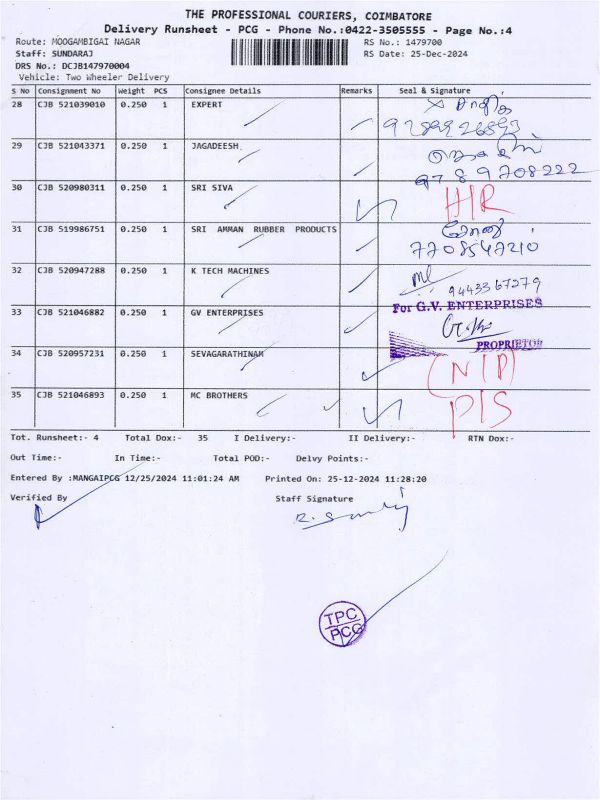 THE PROFESSIONAL COURIERS, COIMBATORE
Delivery Runsheet - PCG - Phone No.:0422-3505555 - Page No.:4
Route: MOOGAMBIGAI NAGAR RS No.: 1479700
Staff: SUNDARAJ RS Date: 25-Dec-2024
DRS No.: DCJB147970004
Vehicle: Two Wheeler Delivery
S No Consignment No Weight PCS Consignee Details Remarks Seal & Signature
28 CJB 521039010 0.250 1 EXPERT
29 CJB 521043371 0.250 1 JAGADEESH
9789708222
30 CJB 520980311 0.250 1 SRI SIVA
31 CJB 519986751 0.250 1 SRI AMMAN RUBBER PRODUCTS
7708547210
32 CJB 520947288 0.250 1 K TECH MACHINES
9443367279
33 CJB 521046882 0.250 1 GV ENTERPRISES
For G.V. ENTERPRISES
PROPRIETOR
34 CJB 520957231 0.250 1 SEVAGARATHINAM
35 CJB 521046893 0.250 1 MC BROTHERS
Tot. Runsheet:- 4 Total Dox:- 35 I Delivery:- II Delivery:- RTN Dox:-
Out Time:- In Time:- Total POD:- Delvy Points:-
Entered By :MANGAIPCG 12/25/2024 11:01:24 AM Printed On: 25-12-2024 11:28:20
Verified By Staff Signature
TPC
PCG